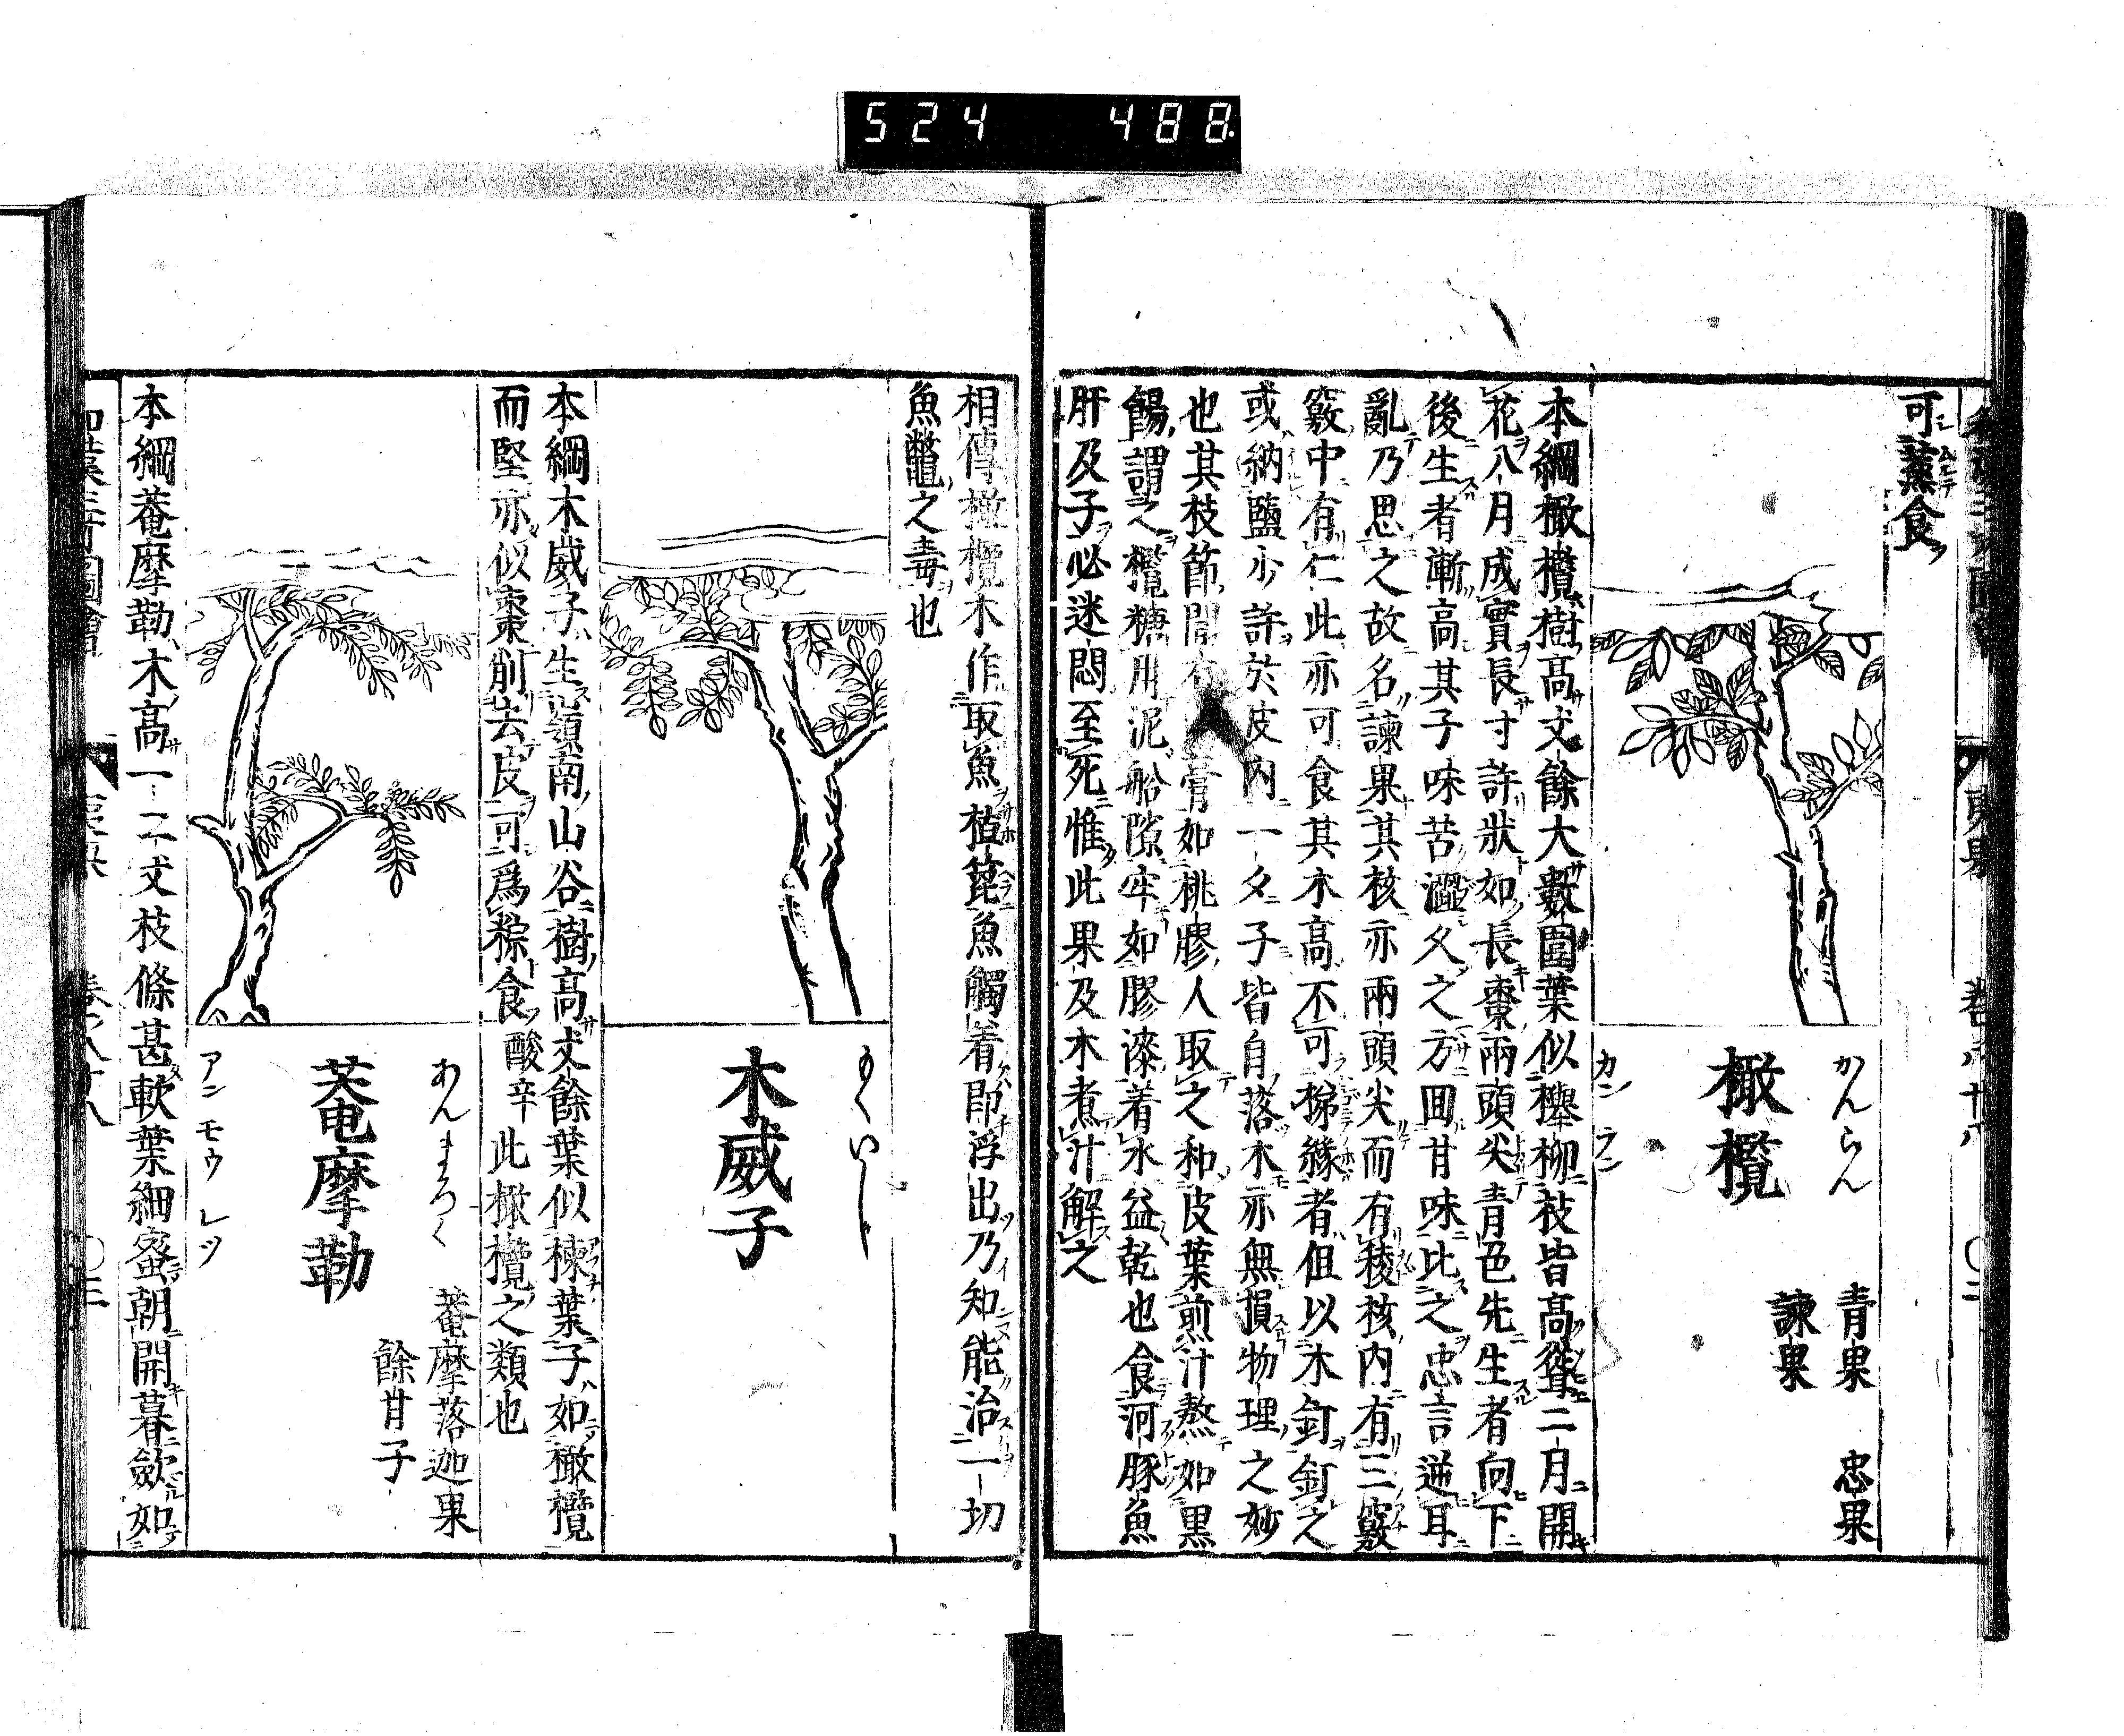 524 488
可蒸食
かんらん
橄欖
カンラン
青果 忠果
諫果
本綱橄欖樹高丈餘大數圍葉似櫸柳枝皆高聳二月開
花八月成實長寸許狀如長棗兩頭尖青色先生者向下
後生者漸高其子味苦澀久之方回甘味比之忠言逆耳
亂乃思之故名諫果其核亦兩頭尖而有稜核內有三竅
竅中有仁此亦可食其木高不可梯緣者但以木釘釘之
或納鹽少許於皮內一夕子皆自落木亦無損物理之妙
也其枝節間有 膏如桃膠人取之和皮葉煎汁熬如黑
餳謂之欖糖用泥船隙牢如膠漆着水益乾也食河豚魚
肝及子必迷悶至死惟此果及木煮汁解之
相傳橄欖木作取魚楂箆魚觸着即浮出乃知能治一切
魚鼈之毒也
もくいし
木威子
本綱木威子生嶺南山谷樹高丈餘葉似楝葉子如橄欖
而堅亦似棗削去皮可爲粽食酸辛此橄欖之類也
あんまろく
菴摩勒
アンモウレツ
菴摩落迦果
餘甘子
本綱菴摩勒木高一二丈枝條甚軟葉細蜜朝開暮斂如